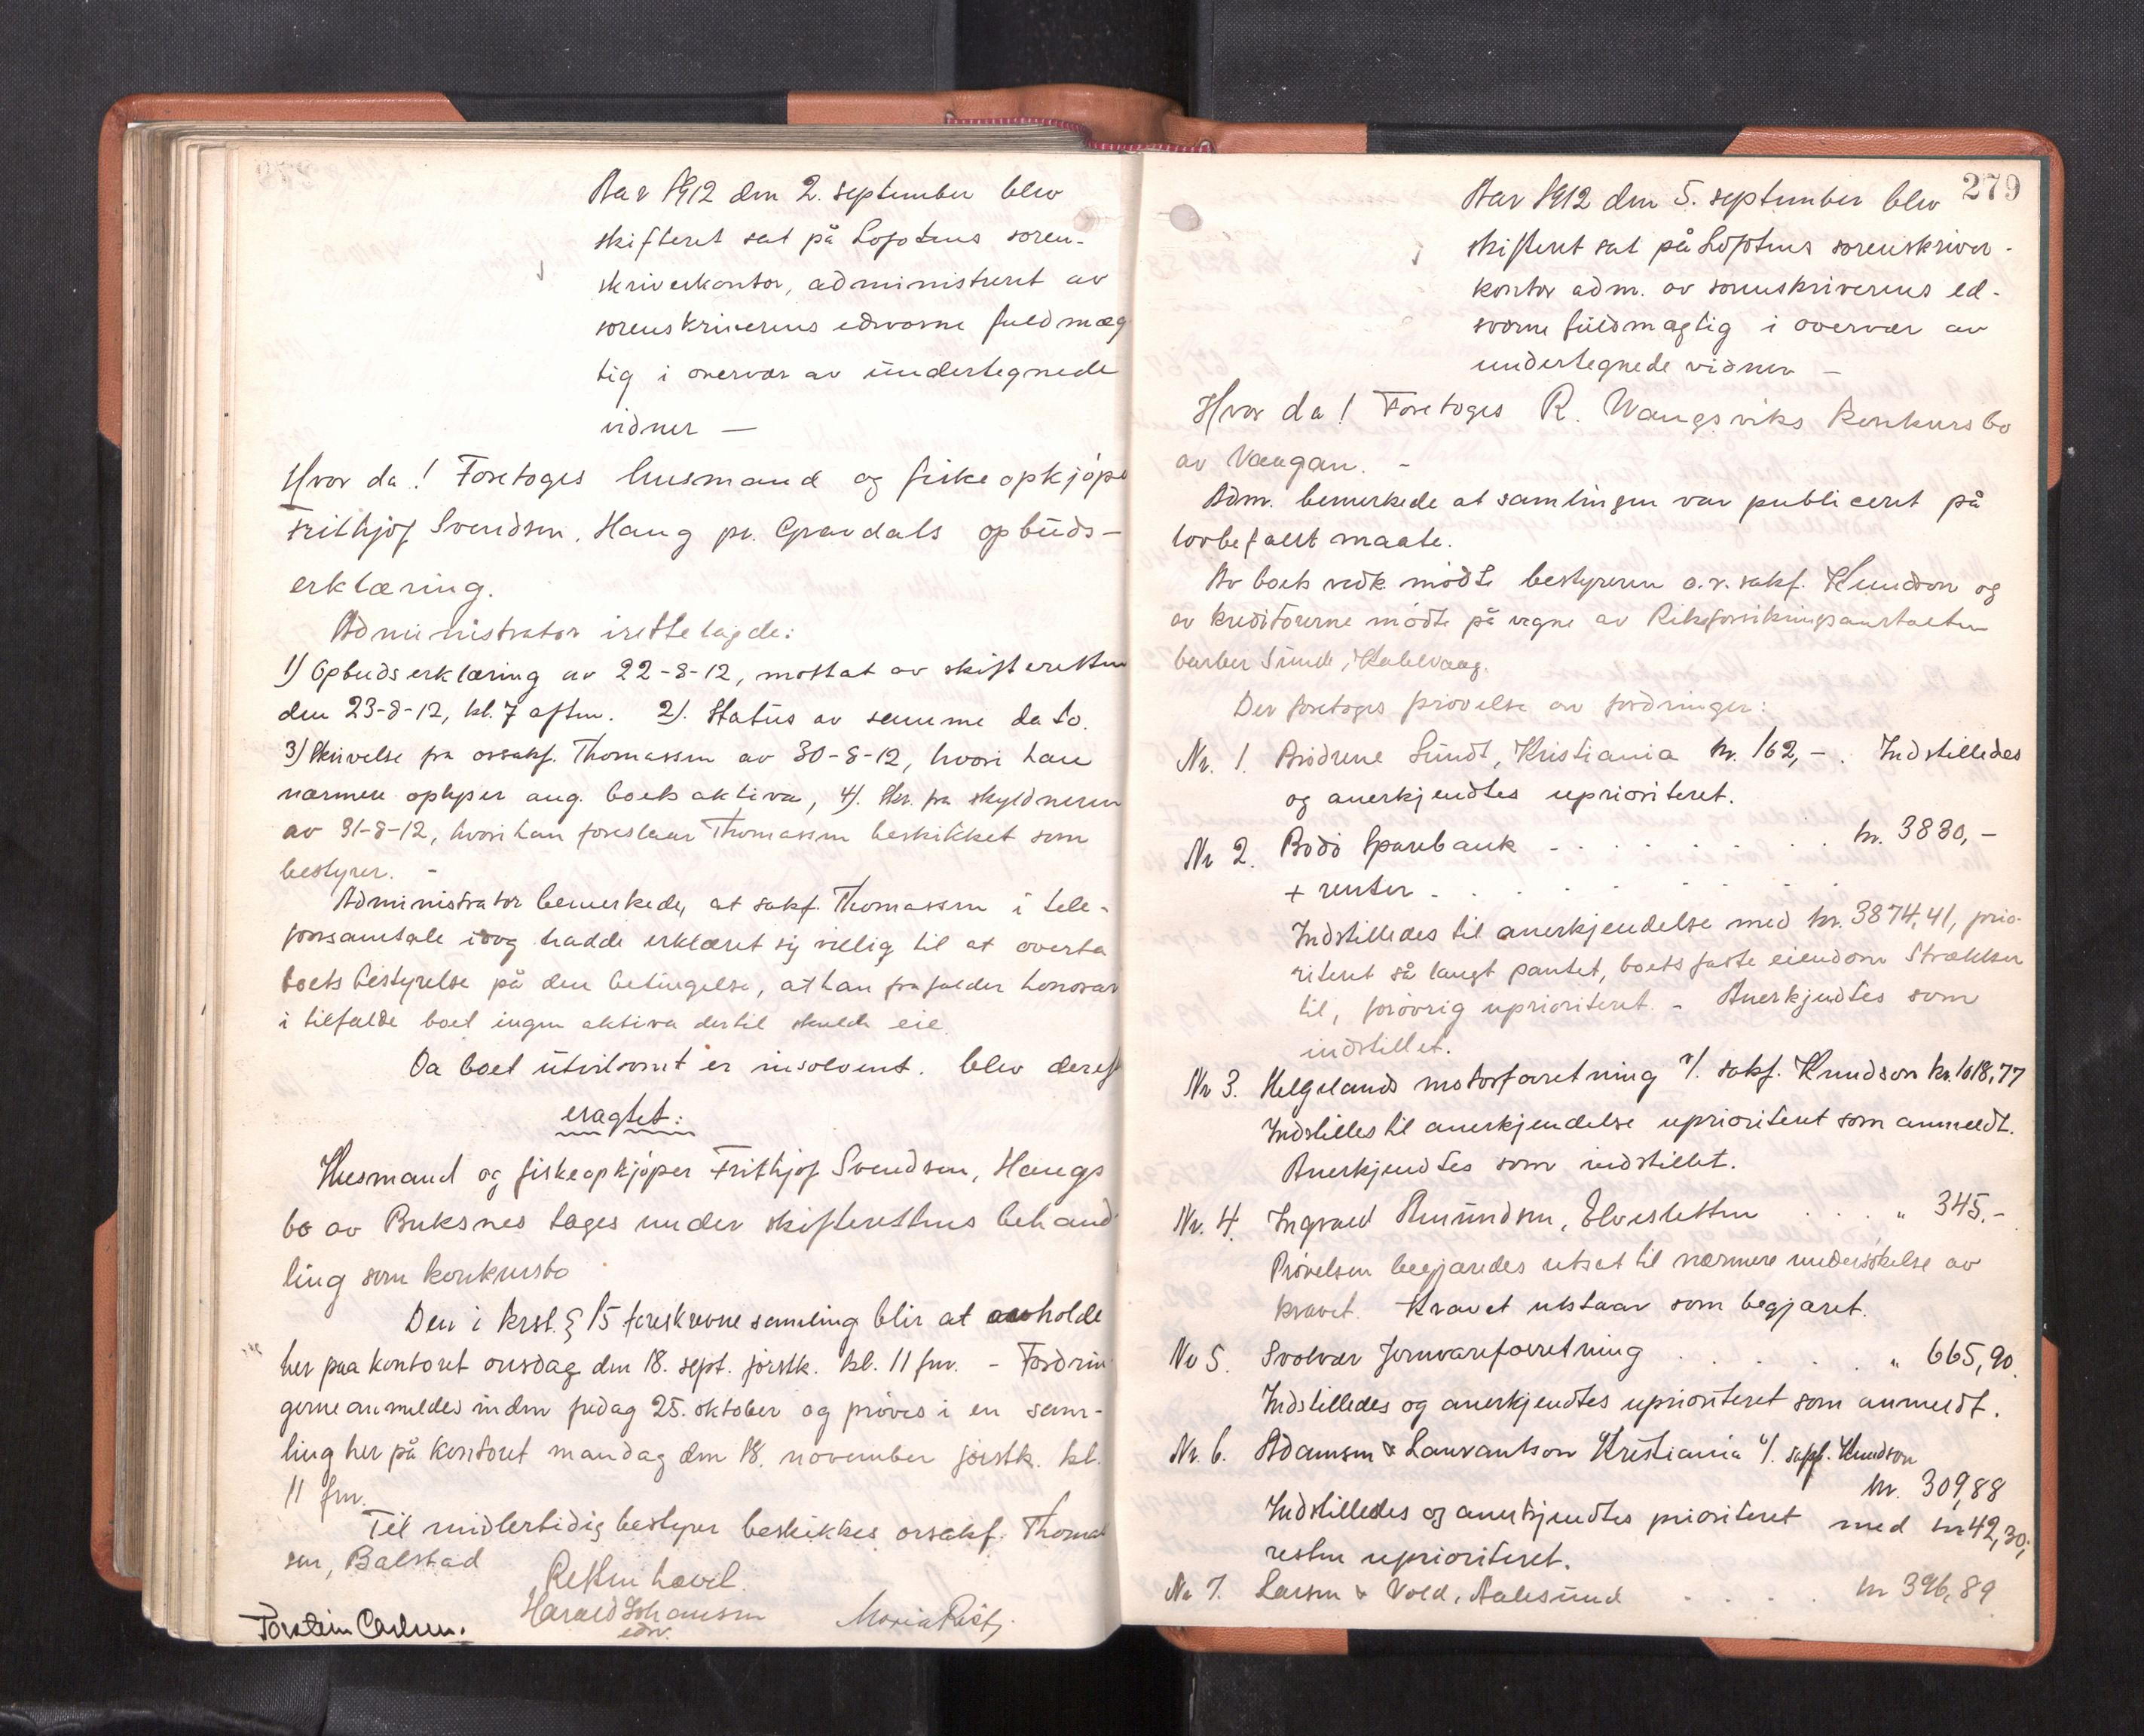 Aar 1912 den 2. september blev
skifteret sat på Lofotens soren-
skriverkontor, administreret av
sorenskriverens edsvorne fuldmæg
tig i overvær av undertegnede
vidner —
Hvor da! Foretoges husmand og fiskeopkjøpe
Frithjof Svendsen, Haug pr. Gravdals opbuds-
erklæring.
Administrator irettelagde:
1) Opbudserklæring av 22-8-12, mottat av skifteretten
den 23-8-12, kl. 7 aften. 2). Status av samme dato.
3) Skrivelse fra orsakf. Thomassen av 30-8-12, hvori han
nærmere oplyser ang. boets aktiva, 4). Skr. fra skyldneren
av 31-8-12, hvori han foreslaar Thomassen beskikket som
bestyrer. -
Administrator bemerkede, at sakf. Thomassen i tele-
fonsamtale idag hadde erklæret sig villig til at overta
boets bestyrelse på den betingelse, at han frafalder honorar
i tilfælde boet ingen aktiva dertil skulde eie.
Da boet utvilsomt er insolvent. blev deref
eragtet:
Husmand og fiskeopkjøper Frithjof Svendsen, Haugs
bo av Buksnes tages under skifterettens behand
ling som konkursbo
Den i krsl. § 15 foreskrevne samling blir at avholde
her paa kontoret onsdag den 18. sept. førstk. kl. 11 fm. - Fordrin
gerne anmeldes inden fredag 25. oktober og prøves i en sam-
ling her på kontoret mandag den 18. november førstk. kl.
11 fm.
Til midlertidig bestyrer beskikkes orsakf. Thomas
sen, Balstad
Retten hævet.
Harald Johansen
edsv.
Torstein Carlsen. Maria Rist
279
Aar 1912 den 5. september blev
skifteret sat på Lofotens sorenskriver-
kontor adm. av sorenskriverens ed-
svorne fuldmægtig i overvær av
undertegnede vidner —
Hvor da! Foretoges R. Wangsviks konkursbo
av Vaagan. -
Adm. bemerkede at samlingen var publiceret på
lovbefalt maate.
Av boets vedk. mødte bestyreren o.r.sakf. Knudson og
av kreditorerne mødte på vegne av Riksforsikringsanstalten
barber Sunde, Kabelvaag.
Der foretoges prøvelse av fordringer:
Nr. 1. Brødrene Sundt, Kristiania kr. 162,-. Indstilledes
og anerkjendtes uprioriteret.
Nr 2. Bodø Sparebank - . . . . . . . kr. 3830,-
+ renter - . . . . . . .
Indstilledes til anerkjendelse med kr. 3874,41, prio-
riteret så langt pantet, boets faste eiendom strækker
til, forøvrig uprioriteret. - Anerkjendtes som
indstillet.
Nr 3. Helgelands motorforretning v/. sakf. Knudson kr. 1618,77
Indstilles til anerkjendelse uprioriteret som anmeldt.
Anerkjendtes som indstillet.
Nr. 4. Ingvald Amundsen, Elvesletten . . . . „ 345.-
Prøvelsen begjæredes utsat til nærmere undersøkelse av
kravet. Kravet utstaar som begjæret.
No 5. Svolvær Jernvareforretning . . . . . . „ 665,90.
Indstilledes og anerkjendtes uprioriteret som anmeldt.
Nr. 6. Adamsen & Lauvantson Kristiania v/. sakf. Knudson
kr. 309,88
Indstilledes og anerkjendtes prioriteret med kr 42,30;
resten uprioriteret.
No 7. Larsen & Vold, Aalesund . . . . kr 396,89